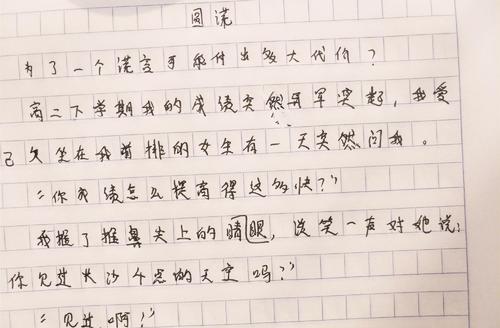 圆谎
为了一个谎言可承付出多大代价？
高二下学期我的成绩突然异军突起，我爱
已久坐在我前排的女生有一天突然问我。
“你成绩怎么提高得这么快？”
我握了握鼻尖上的晴眼，淡笑一声对她说：
你见过长沙个点的天空吗？”
“见过啊？